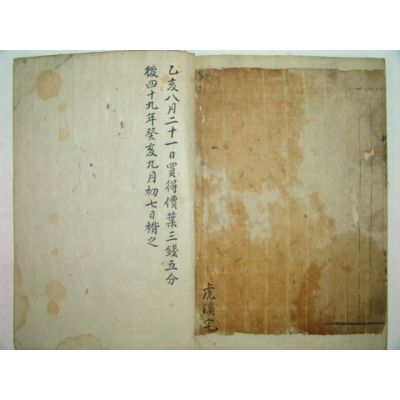 乙亥八月二十一日買得價葉三錢五分
後四十九年癸亥九月初七日楷之
虎溪宅